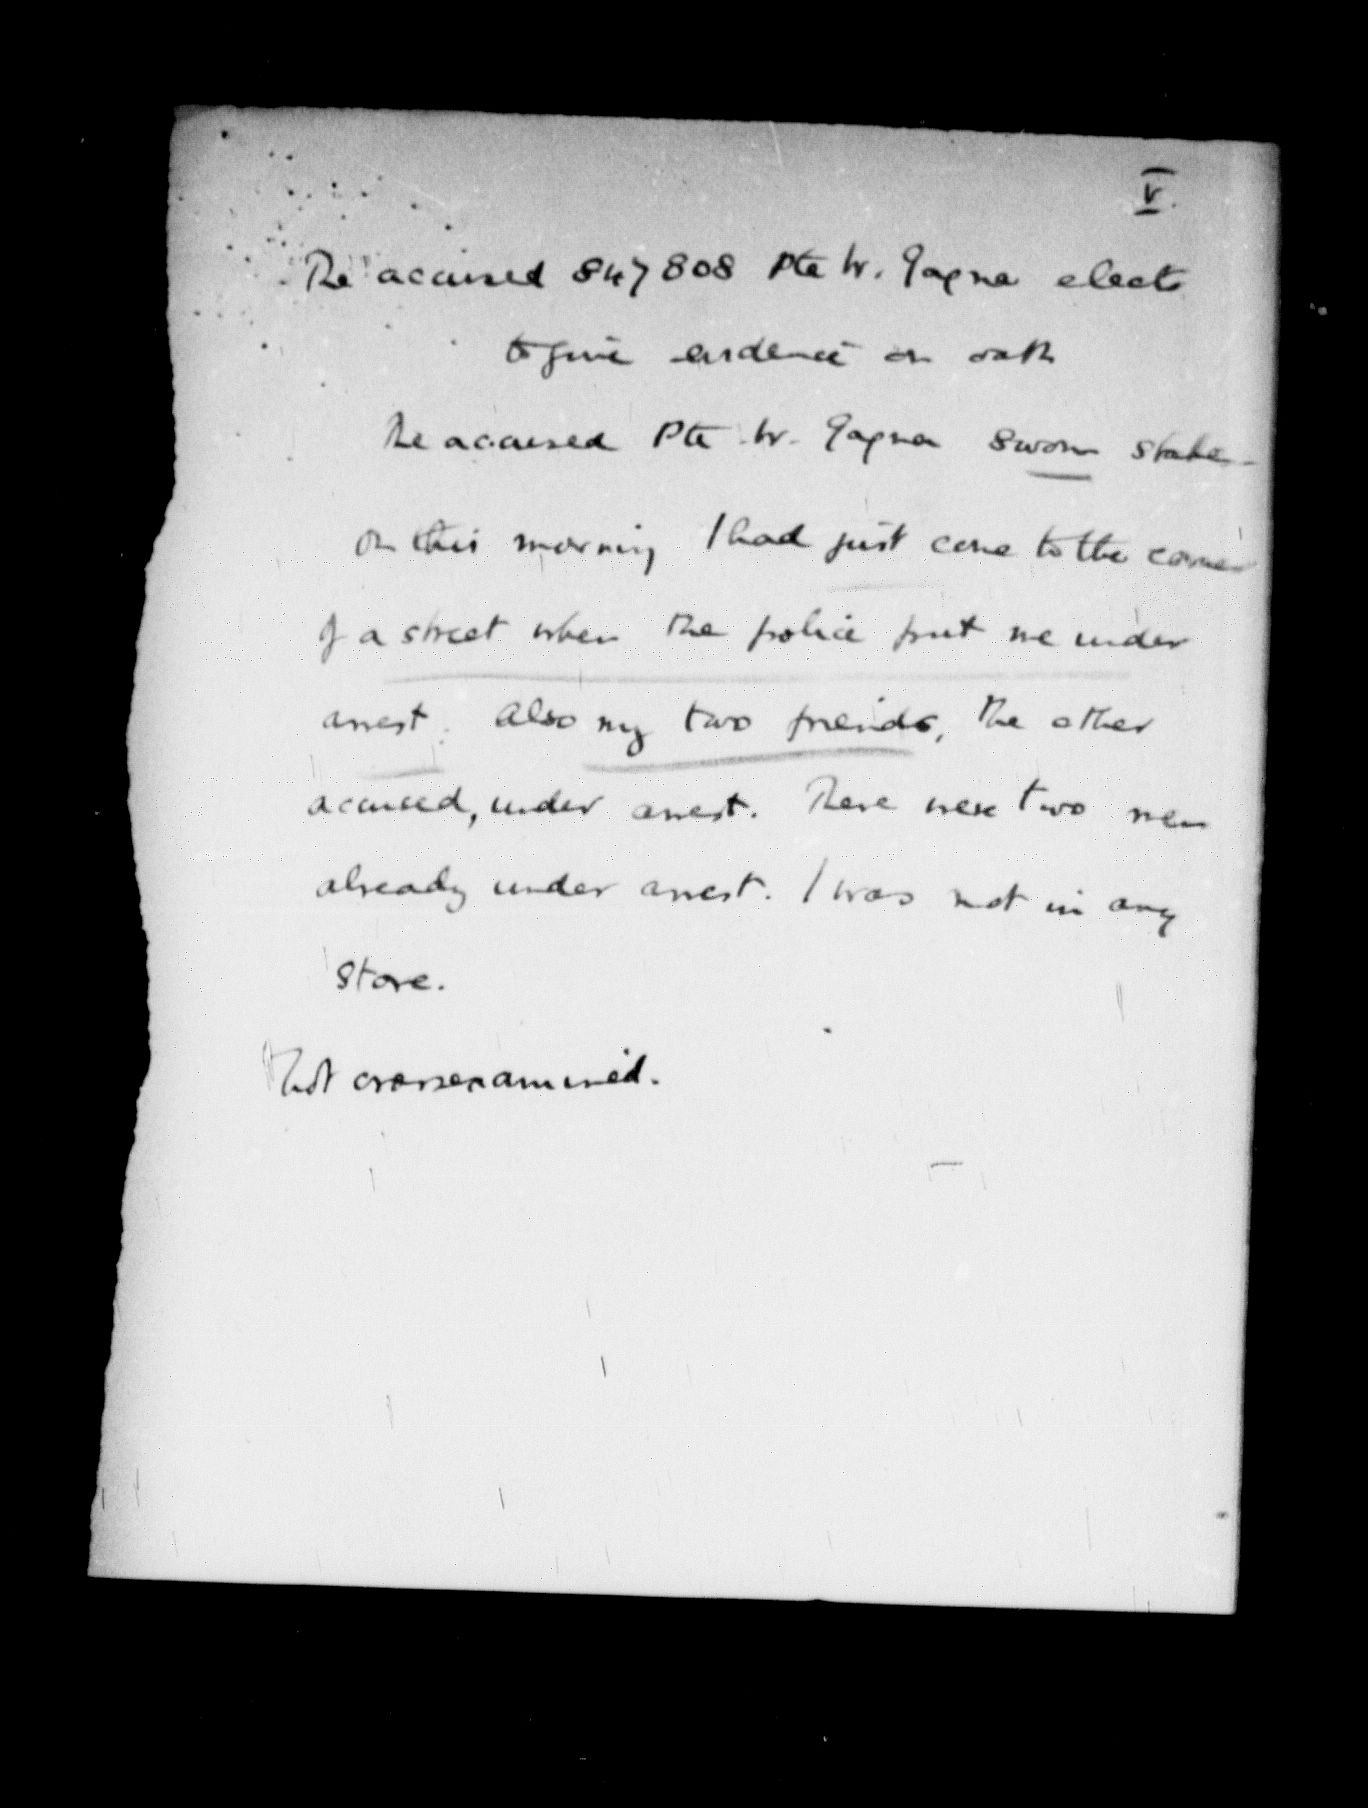 V.
The accused 847808 Pte W. Gagne elects
to give evidence on oath
The accused Pte W. Gagne sworn states-
On this morning I had just come to the corner
of a street when the police put me under
arrest. Also my two friends, the other
accused, under arrest. There were two men
already under arrest. I was not in any
store.
Not crossexamined.